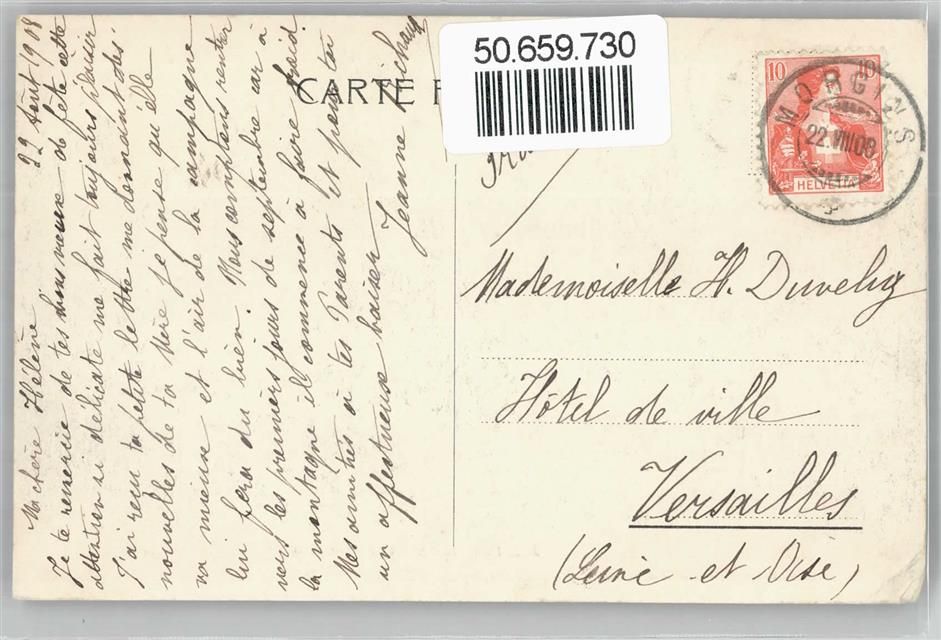 22 Août 1908
Ma chère Hélène
Je te remercie de tes bons vœux de fête cette
attention si délicate me fait toujours plaisir
J'ai reçu ta petite lettre me donnant des
nouvelles de ta Mère je pense qu'elle
va mieux et l'air de la campagne
lui fera du bien. Nous comptons rentrer
vers les premiers jours de septembre car à
la montagne il commence à faire froid
Mes amitiés à tes Parents et pour toi
un affectueux baiser
Jeanne
CARTE P
50.659.730
10 10
HELVETIA
MORGINS
22.VIII 08
Mademoiselle H.
Hôtel de ville
Versailles
(Seine et Oise)